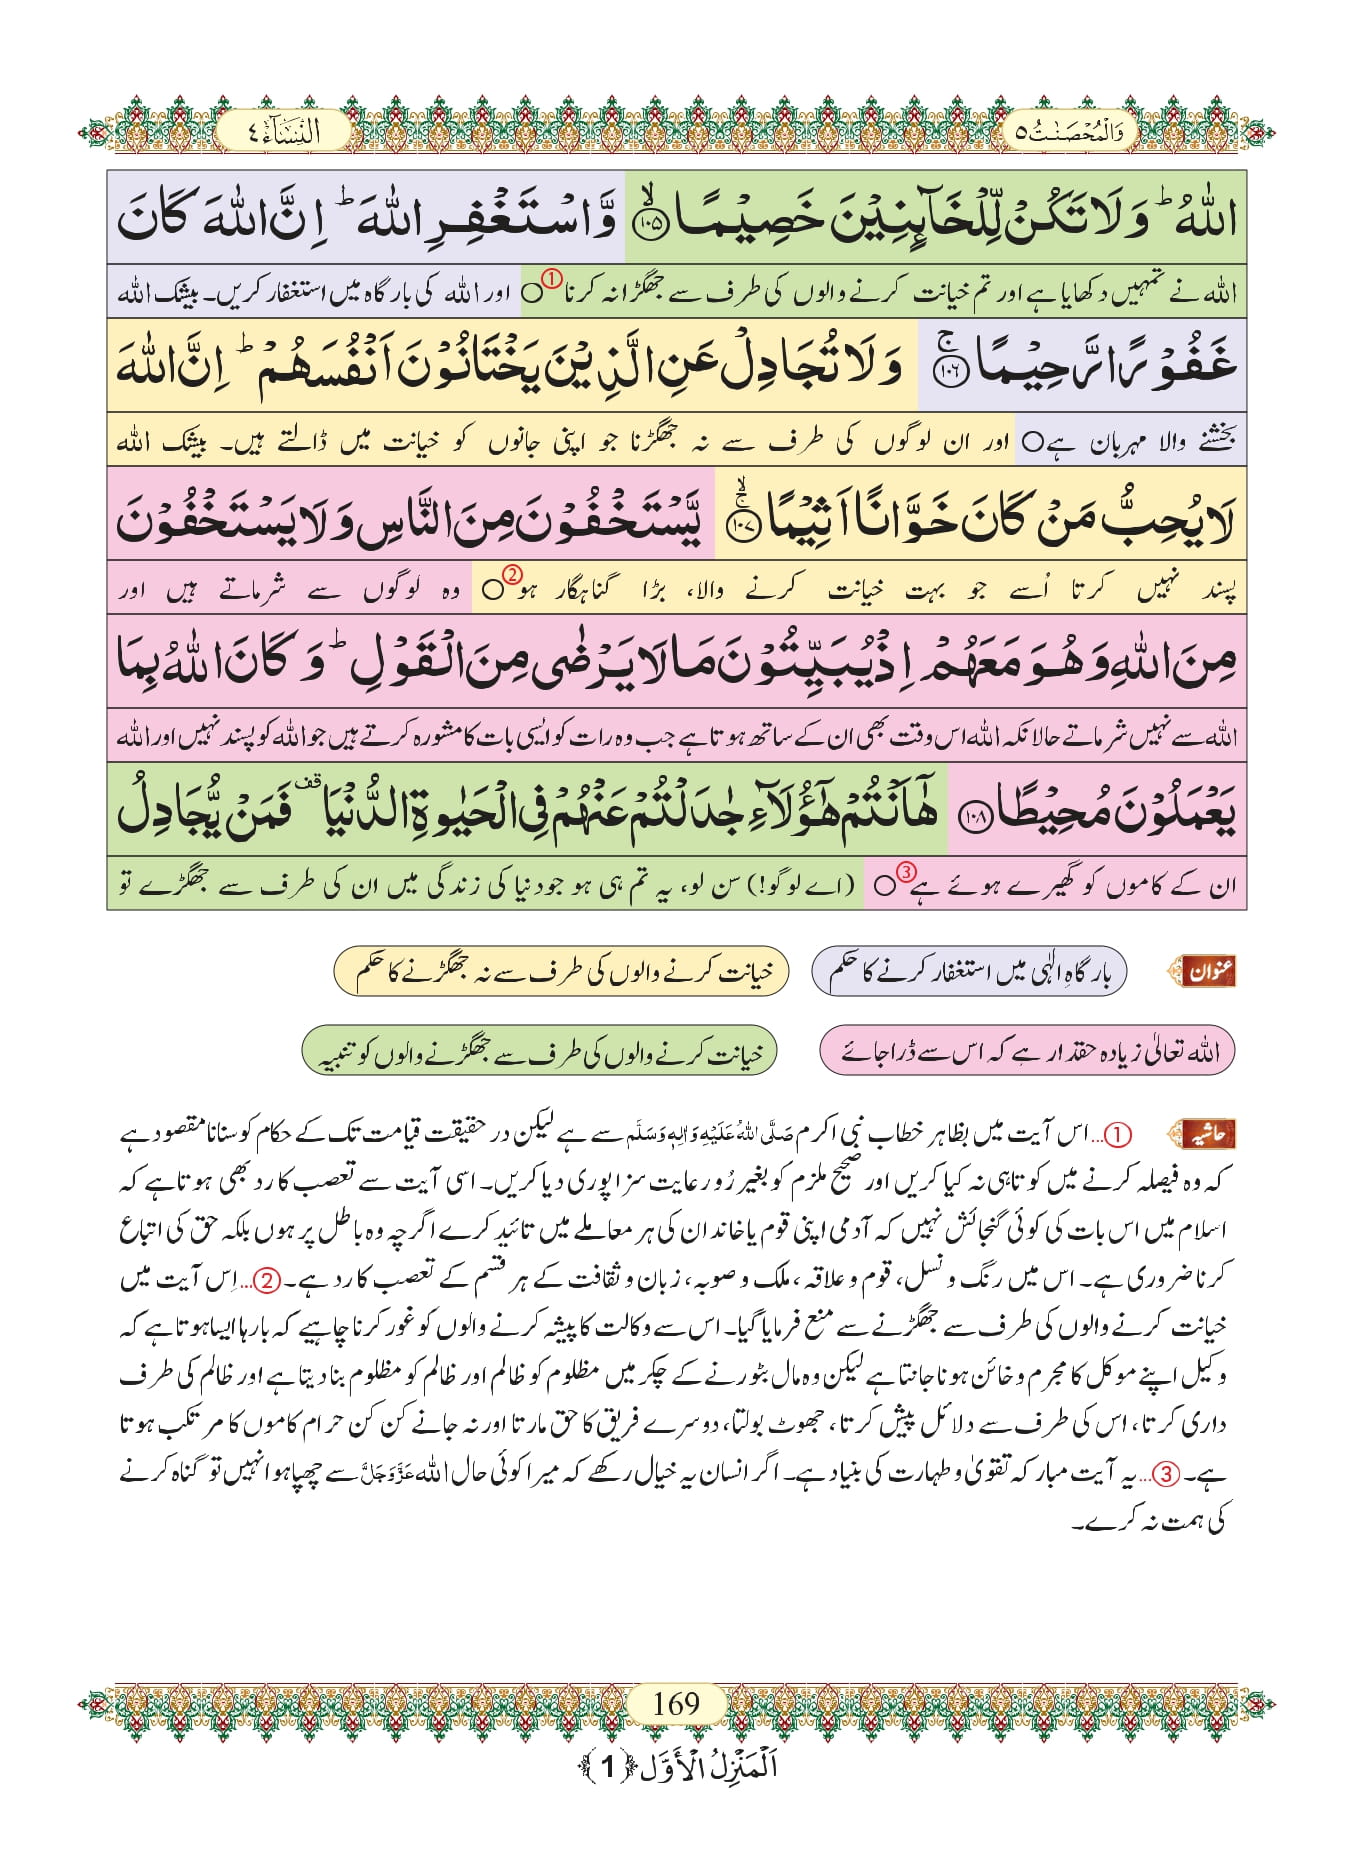 وَالْمُحْصَنٰتُ ۵
النِّسَآء ۴
اللّٰهُ ؕ وَ لَا تَكُنْ لِّلْخَآىٕنِیْنَ خَصِیْمًاۙ(۱۰۵) وَّ اسْتَغْفِرِ اللّٰهَ ؕ اِنَّ اللّٰهَ كَانَ
اللہ نے تمہیں دکھایا ہے اور تم خیانت کرنے والوں کی طرف سے جھگڑا نہ کرنا ① ○ اور اللہ کی بارگاہ میں استغفار کریں۔ بیشک اللہ
غَفُوْرًا رَّحِیْمًاۚ(۱۰۶) وَ لَا تُجَادِلْ عَنِ الَّذِیْنَ یَخْتَانُوْنَ اَنْفُسَهُمْ ؕ اِنَّ اللّٰهَ
بخشنے والا مہربان ہے ○ اور ان لوگوں کی طرف سے نہ جھگڑنا جو اپنی جانوں کو خیانت میں ڈالتے ہیں۔ بیشک اللہ
لَا یُحِبُّ مَنْ كَانَ خَوَّانًا اَثِیْمًاۚۙ(۱۰۷) یَّسْتَخْفُوْنَ مِنَ النَّاسِ وَ لَا یَسْتَخْفُوْنَ
پسند نہیں کرتا اُسے جو بہت خیانت کرنے والا، بڑا گناہگار ہو ② ○ وہ لوگوں سے شرماتے ہیں اور
مِنَ اللّٰهِ وَ هُوَ مَعَهُمْ اِذْ یُبَیِّتُوْنَ مَا لَا یَرْضٰى مِنَ الْقَوْلِ ؕ وَ كَانَ اللّٰهُ بِمَا
اللہ سے نہیں شرماتے حالانکہ اللہ اس وقت بھی ان کے ساتھ ہوتا ہے جب وہ رات کو ایسی بات کا مشورہ کرتے ہیں جو اللہ کو پسند نہیں اور اللہ
یَعْمَلُوْنَ مُحِیْطًا(۱۰۸) هٰۤاَنْتُمْ هٰۤؤُلَآءِ جٰدَلْتُمْ عَنْهُمْ فِی الْحَیٰوةِ الدُّنْیَا قف فَمَنْ یُّجَادِلُ
ان کے کاموں کو گھیرے ہوئے ہے ③ ○ (اے لوگو!) سن لو، یہ تم ہی ہو جو دنیا کی زندگی میں ان کی طرف سے جھگڑے تو
عنوان بارگاہِ الٰہی میں استغفار کرنے کا حکم خیانت کرنے والوں کی طرف سے نہ جھگڑنے کا حکم
اللہ تعالیٰ زیادہ حقدار ہے کہ اس سے ڈرا جائے خیانت کرنے والوں کی طرف سے جھگڑنے والوں کو تنبیہ
حاشیہ ①... اس آیت میں بظاہر خطاب نبی اکرم صَلَّی اللہُ عَلَیْہِ وَاٰلِہٖ وَسَلَّم سے ہے لیکن در حقیقت قیامت تک کے حکام کو سنانا مقصود ہے
کہ وہ فیصلہ کرنے میں کوتاہی نہ کیا کریں اور صحیح ملزم کو بغیر رُو رعایت سزا پوری دیا کریں۔ اسی آیت سے تعصب کا رد بھی ہوتا ہے کہ
اسلام میں اس بات کی کوئی گنجائش نہیں کہ آدمی اپنی قوم یا خاندان کی ہر معاملے میں تائید کرے اگرچہ وہ باطل پر ہوں بلکہ حق کی اتباع
کرنا ضروری ہے۔ اس میں رنگ و نسل، قوم و علاقہ، ملک و صوبہ، زبان و ثقافت کے ہر قسم کے تعصب کا رد ہے۔ ②... اِس آیت میں
خیانت کرنے والوں کی طرف سے جھگڑنے سے منع فرمایا گیا۔ اس سے وکالت کا پیشہ کرنے والوں کو غور کرنا چاہیے کہ بارہا ایسا ہوتا ہے کہ
وکیل اپنے موکل کا مجرم و خائن ہونا جانتا ہے لیکن وہ مال بٹورنے کے چکر میں مظلوم کو ظالم اور ظالم کو مظلوم بنا دیتا ہے اور ظالم کی طرف
داری کرتا، اس کی طرف سے دلائل پیش کرتا، جھوٹ بولتا، دوسرے فریق کا حق مارتا اور نہ جانے کن کن حرام کاموں کا مرتکب ہوتا
ہے۔ ③... یہ آیت مبارکہ تقویٰ و طہارت کی بنیاد ہے۔ اگر انسان یہ خیال رکھے کہ میرا کوئی حال اللہ عَزَّوَجَلَّ سے چھپا ہوا نہیں تو گناہ کرنے
کی ہمت نہ کرے۔
169
اَلْمَنْزِلُ الْأَوَّل ﴿1﴾